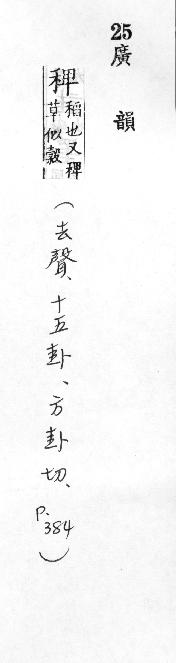 25
廣韻
稗稻也又稗
草似穀
（去聲、十五卦、方卦切、
P.384）